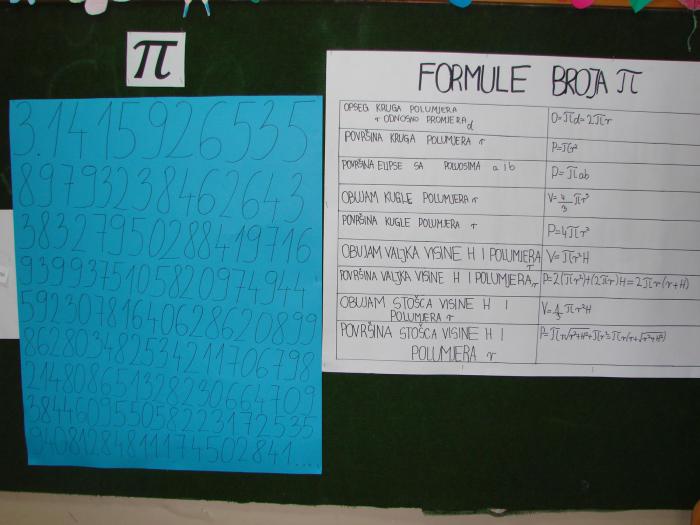 π
3.1415926535
89793238462643
38327950288419716
939937510582097 4944
592307816406286 20899
862803482534211706798
214808651328230664709
384460955058223172535
940812848111174502841...
FORMULE BROJA π
OPSEG KRUGA POLUMJERA
r ODNOSNO PROMJERA d
O=πd=2πr
POVRŠINA KRUGA POLUMJERA r
P=πr²
POVRŠINA ELIPSE SA POLUOSIMA a i b
P=πab
OBUJAM KUGLE POLUMJERA r
V=4/3 πr³
POVRŠINA KUGLE POLUMJERA r
P=4πr²
OBUJAM VALJKA VISINE H I POLUMJERA r
V=πr²H
POVRŠINA VALJKA VISINE H I POLUMJERA r
P=2(πr²)+(2πr)H=2πr(r+H)
OBUJAM STOŠCA VISINE H I
POLUMJERA r
V=1/3 πr²H
POVRŠINA STOŠCA VISINE H I
POLUMJERA r
P=πr√r²+H²+πr²=πr(r+√r²+H²)